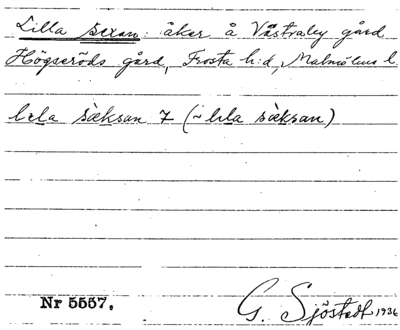 Lilla sexan: åker å Västraby gård
Högseröds gård, Frosta h:d, Malmöhus l.
lila sàksan 7 (~ lıla sàksan)
Nr 5557.
G. Sjöstedt 1936